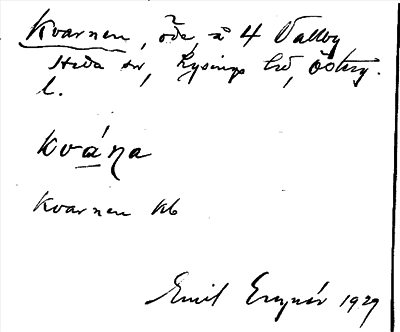 Kvarnen, öde, å 4 Valby
Heda sn, Lysings hd, Österg.
l.
kvána
Kvarnen kb
Emil 1929